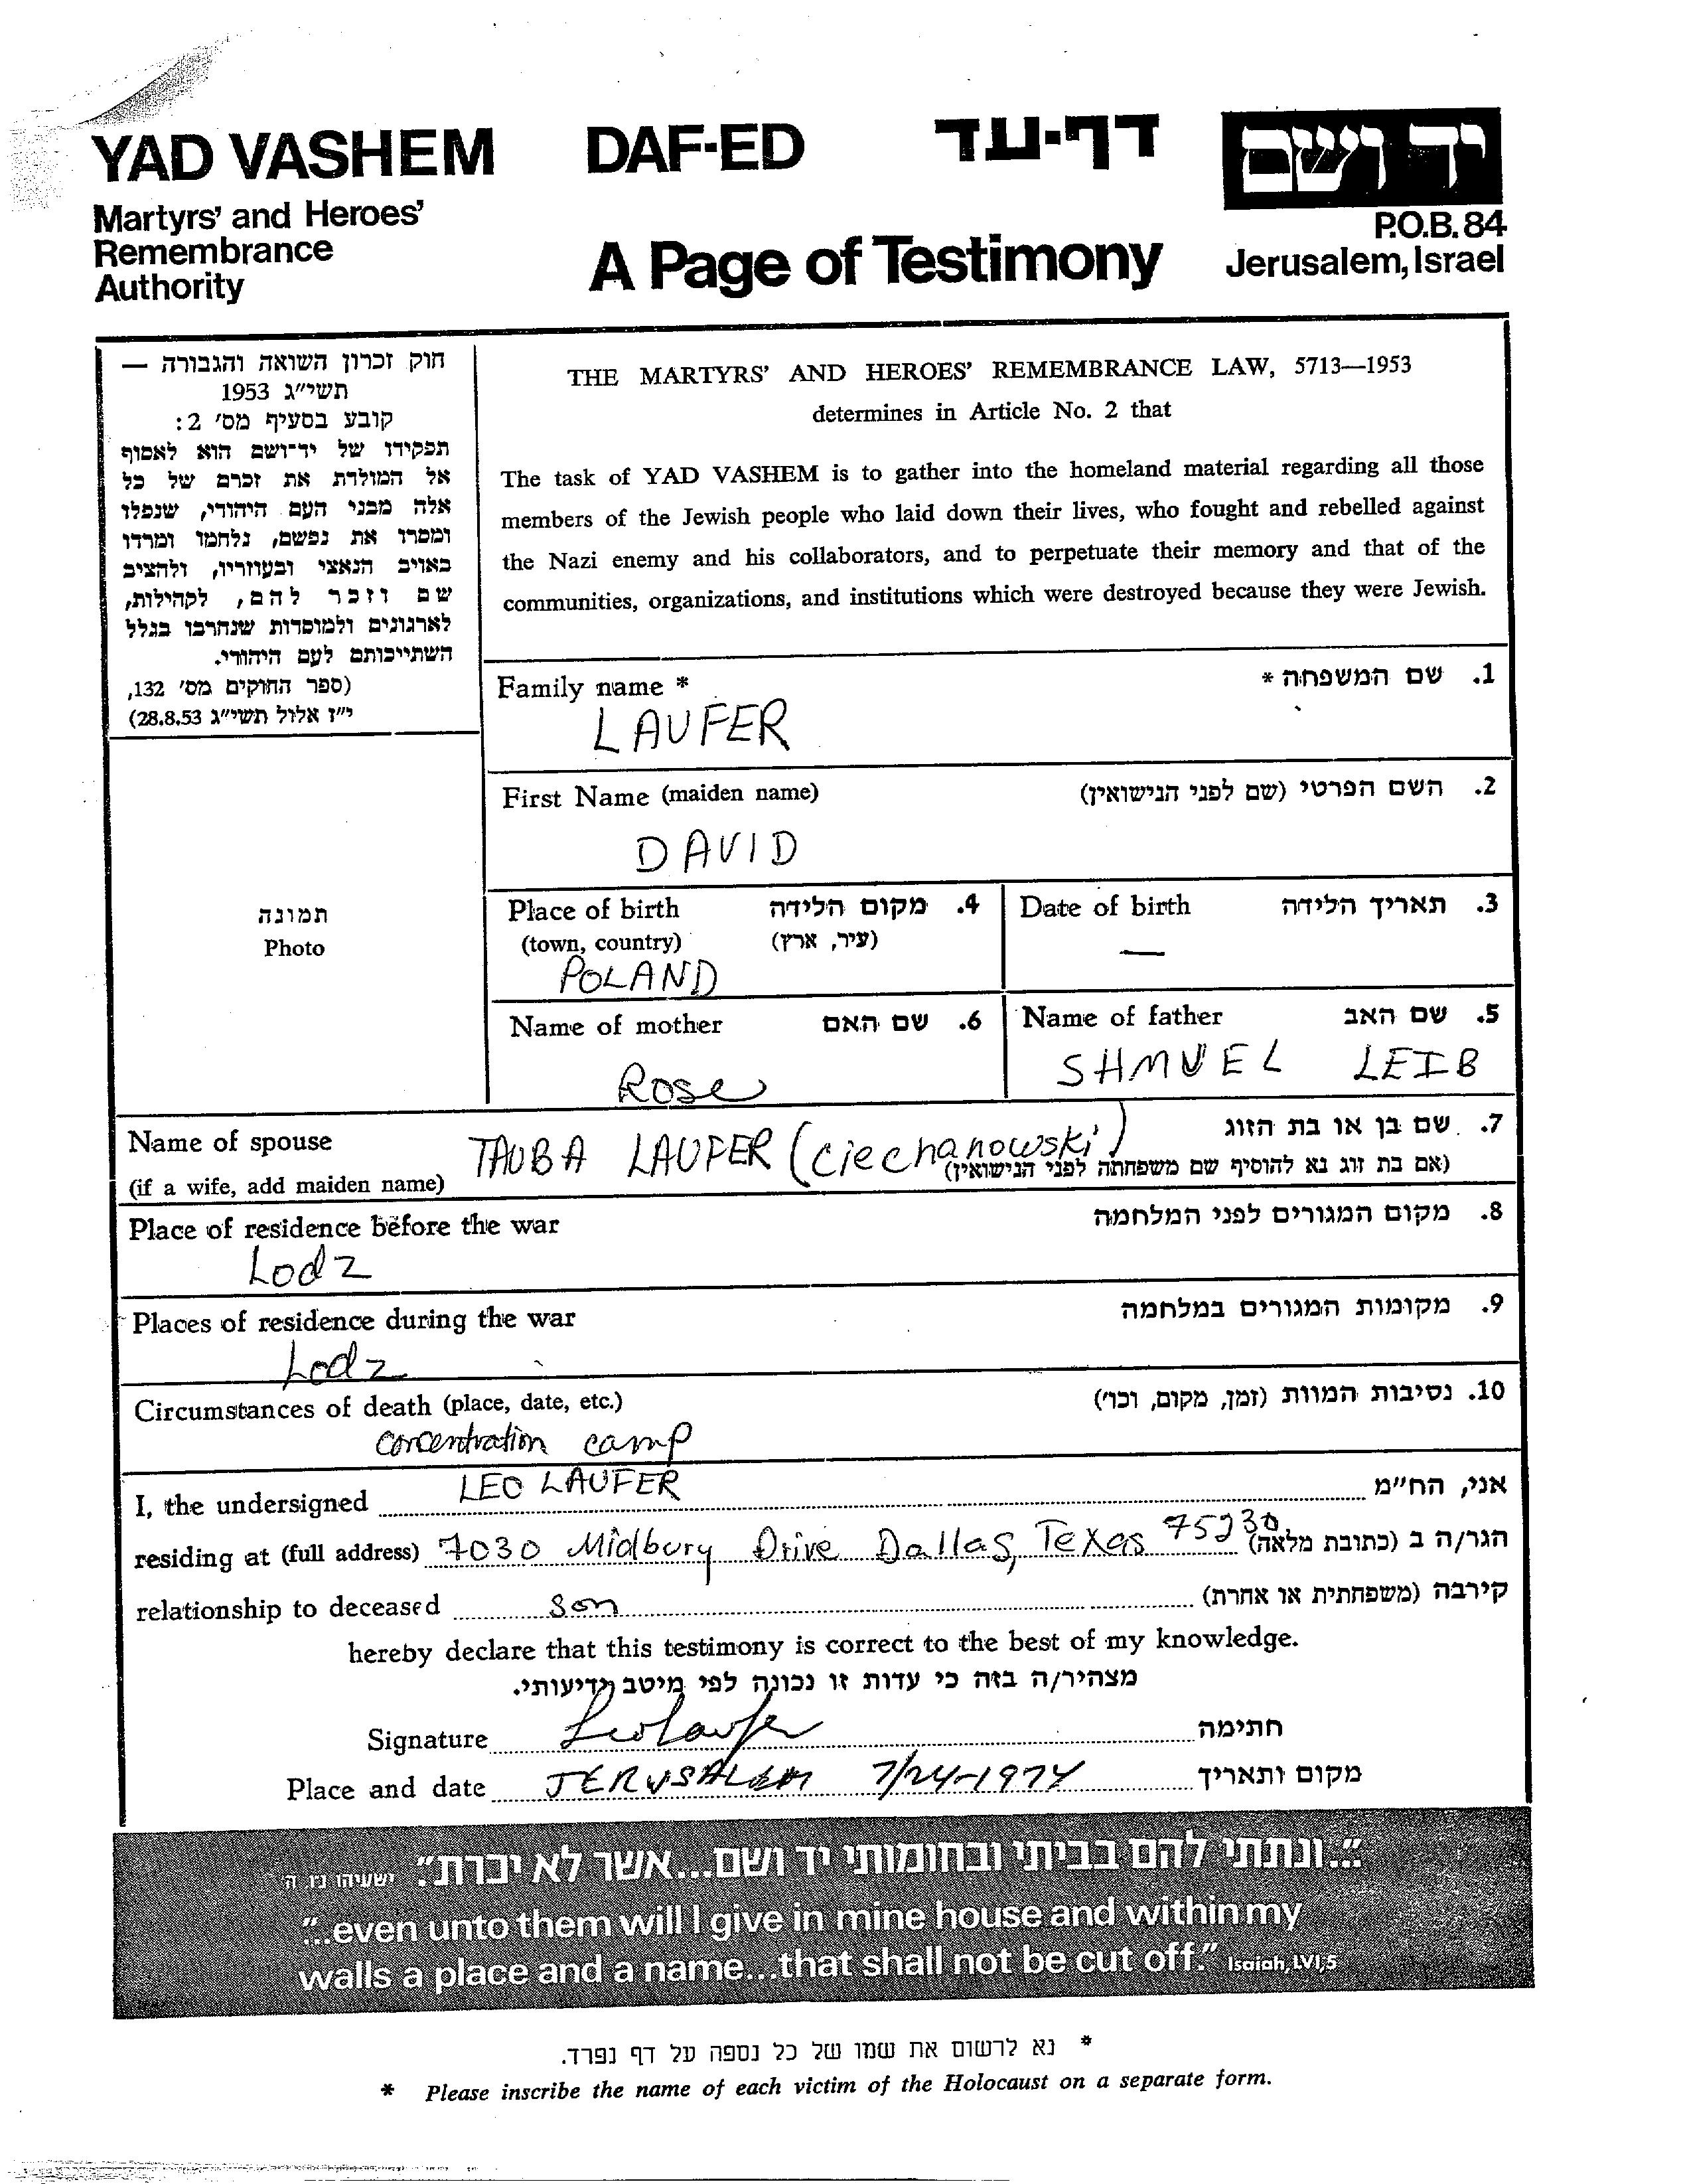 YAD VASHEM DAF-ED דף-עד יד ושם
Martyrs' and Heroes'
Remembrance
Authority
A Page of Testimony
P.O.B. 84
Jerusalem, Israel
חוק זכרון השואה והגבורה —
תשי״ג 1953
קובע בסעיף מס׳ 2:
תפקידו של יד־ושם הוא לאסוף
אל המולדת את זכרם של כל
אלה מבני העם היהודי, שנפלו
ומסרו את נפשם, נלחמו ומרדו
באויב הנאצי ובעוזריו, ולהציב
שם וזכר להם, לקהילות,
לארגונים ולמוסדות שנחרבו בגלל
השתייכותם לעם היהודי.
(ספר החוקים מס׳ 132,
י״ז אלול תשי״ג 28.8.53)
THE MARTYRS' AND HEROES' REMEMBRANCE LAW, 5713—1953
determines in Article No. 2 that
The task of YAD VASHEM is to gather into the homeland material regarding all those
members of the Jewish people who laid down their lives, who fought and rebelled against
the Nazi enemy and his collaborators, and to perpetuate their memory and that of the
communities, organizations, and institutions which were destroyed because they were Jewish.
Family name * 1. שם המשפחה *
LAUFER
First Name (maiden name) 2. השם הפרטי (שם לפני הנישואין)
DAVID
תמונה
Photo
Place of birth 4. מקום הלידה
(town, country) (עיר, ארץ)
POLAND
Date of birth 3. תאריך הלידה
—
Name of mother 6. שם האם
Rose
Name of father 5. שם האב
SHMUEL LEIB
Name of spouse 7. שם בן או בת הזוג
TAUBA LAUFER (Ciechanowski)
(if a wife, add maiden name) (אם בת זוג נא להוסיף שם משפחתה לפני הנישואין)
Place of residence before the war 8. מקום המגורים לפני המלחמה
Lodz
Places of residence during the war 9. מקומות המגורים במלחמה
Lodz
Circumstances of death (place, date, etc.) 10. נסיבות המוות (זמן, מקום, וכו׳)
concentration camp
I, the undersigned LEO LAUFER אני, הח״מ
residing at (full address) 7030 Midbury Drive Dallas, Texas 75230 הגר/ה ב (כתובת מלאה)
relationship to deceased son קירבה (משפחתית או אחרת)
hereby declare that this testimony is correct to the best of my knowledge.
מצהיר/ה בזה כי עדות זו נכונה לפי מיטב ידיעותי.
Signature Leo Laufer חתימה
Place and date JERUSALEM 7/24-1974 מקום ותאריך
״...ונתתי להם בביתי ובחומותי יד ושם...אשר לא יכרת״. ישעיהו נו, ה
"...even unto them will I give in mine house and within my
walls a place and a name...that shall not be cut off." Isaiah, LVI,5
* נא לרשום את שמו של כל נספה על דף נפרד.
* Please inscribe the name of each victim of the Holocaust on a separate form.